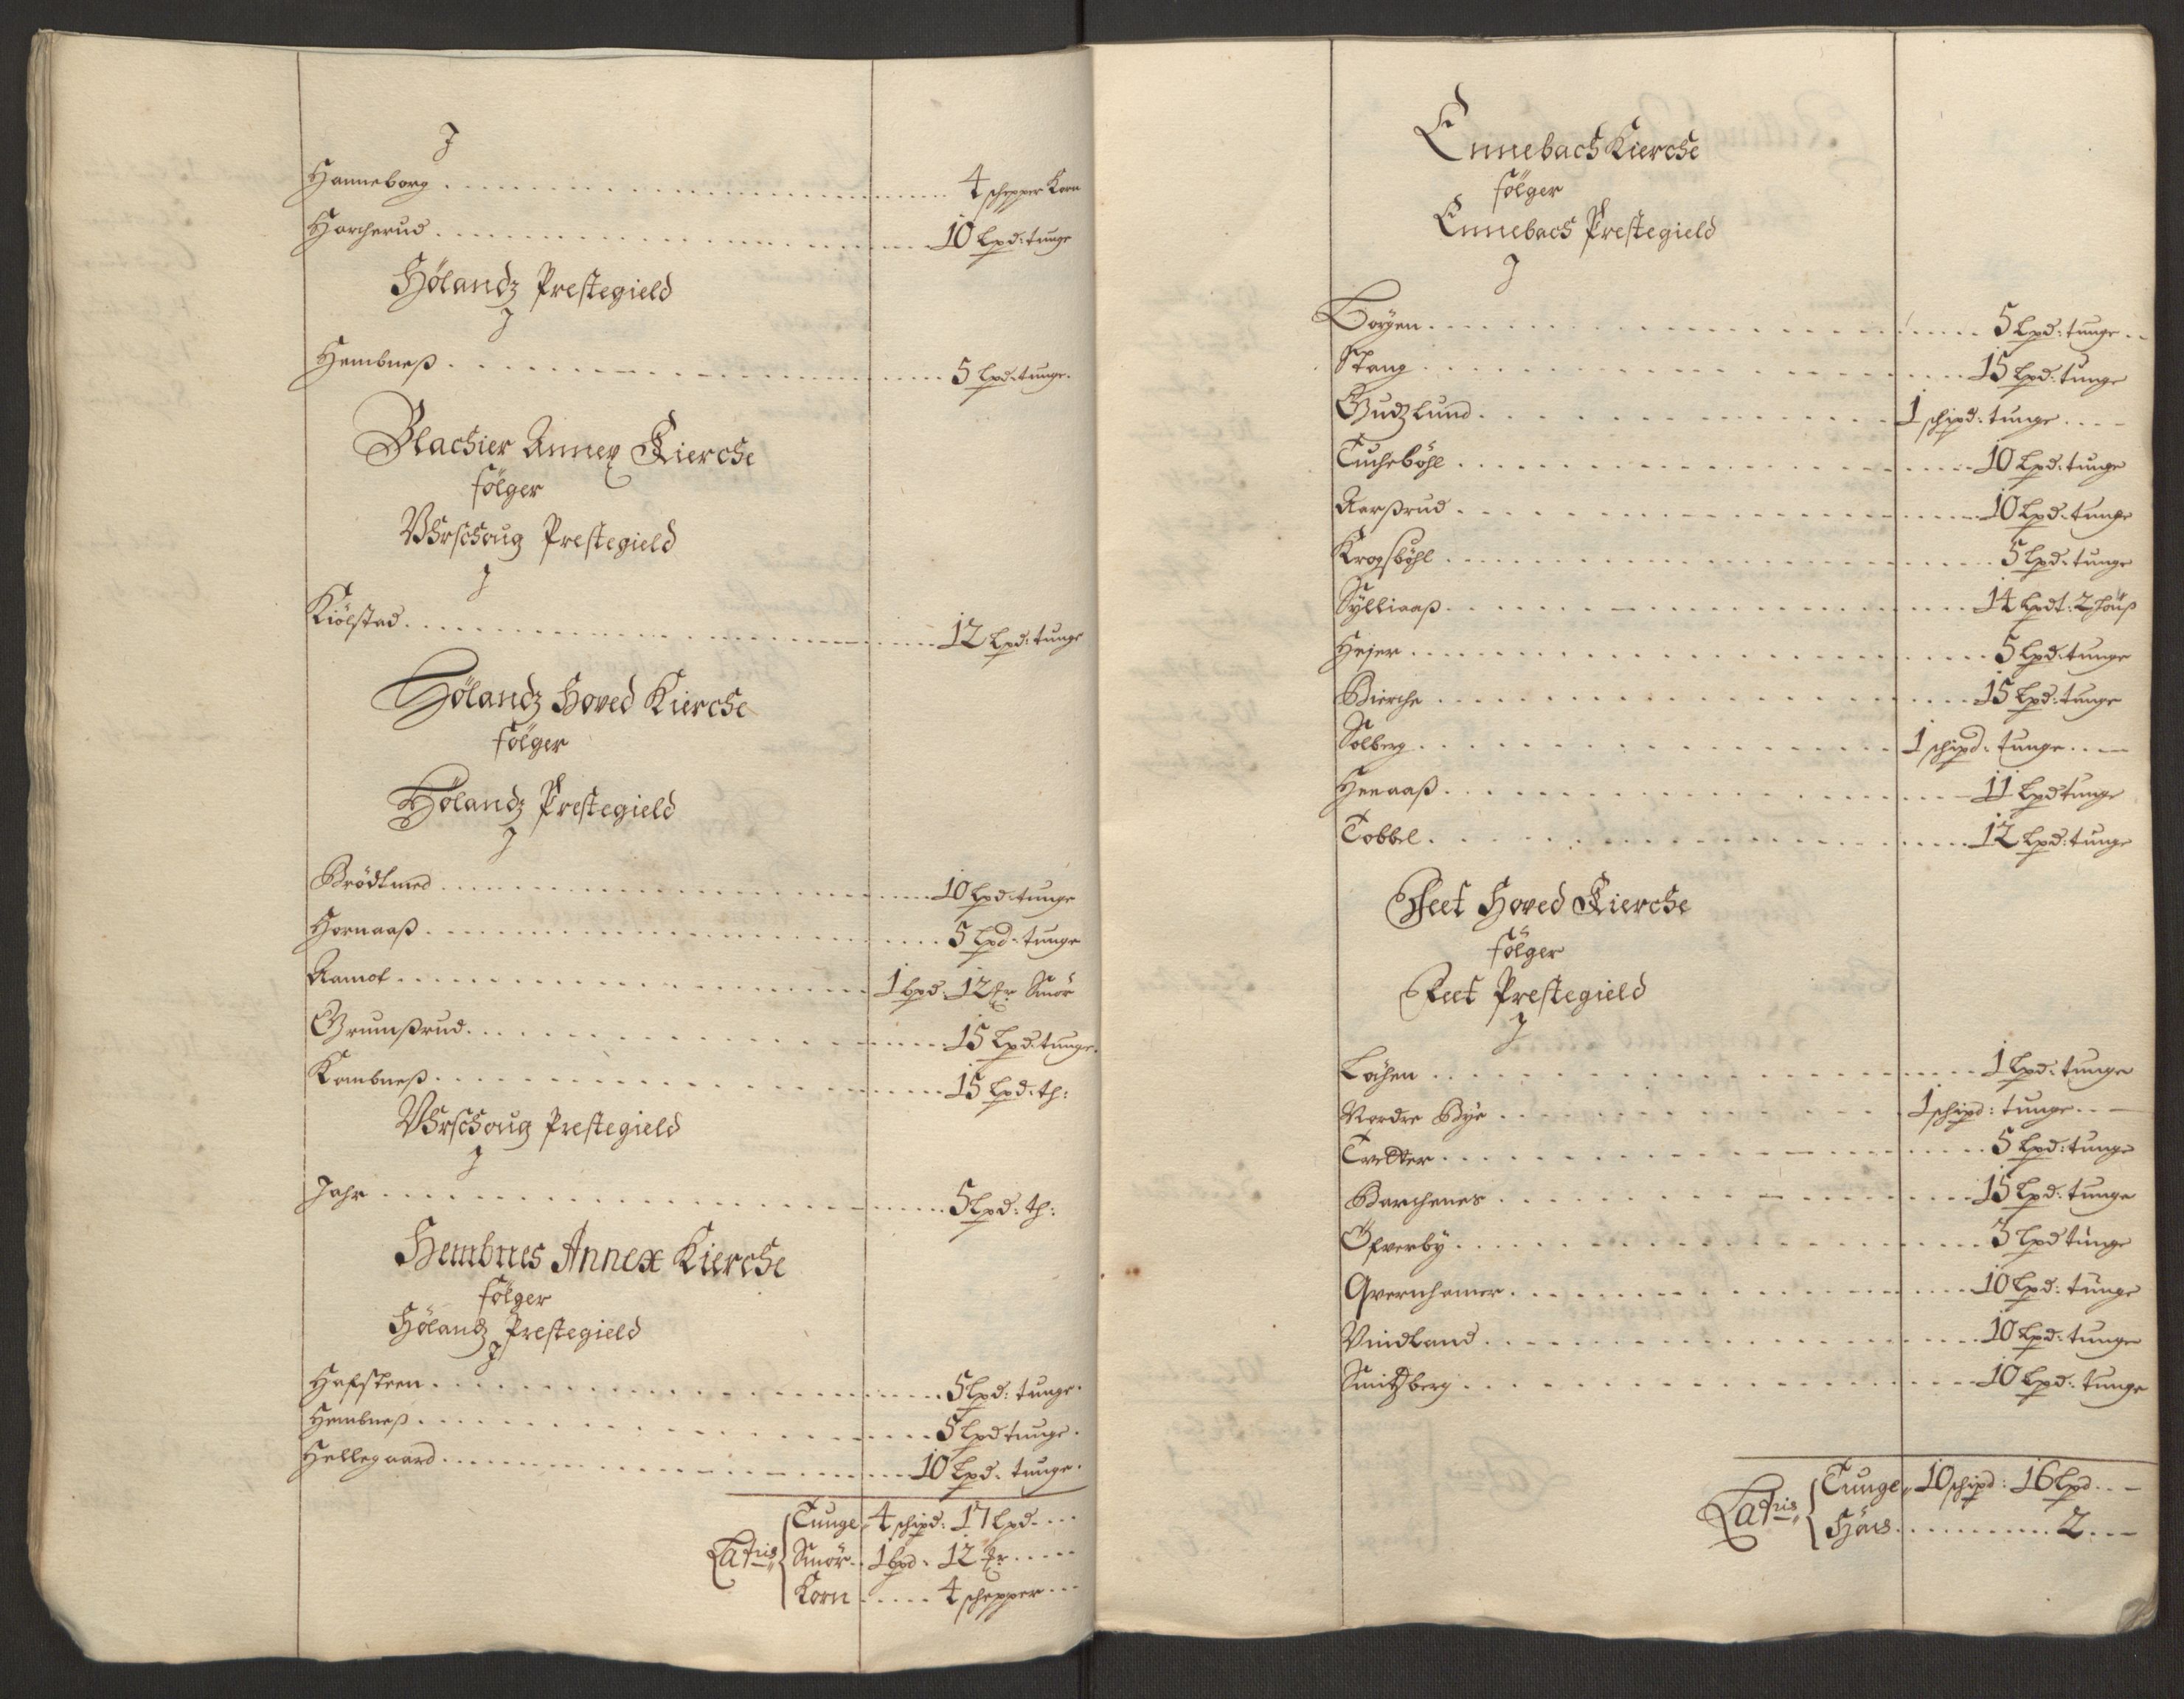 J
Hanneborg . . . 4 schepper Korn
Harcherud . . . 10 Lpd: tunge
Hölandz Prestegield
J
Hembneß . . . 5 Lpd: tunge.
Blachier Annex Kierche
fölger
Uhrschoug Prestegield
J
Kiölstad . . . 12 Lpd: tunge
Hölandz Hoved Kierche
fölger
Hölandz Prestegield
J
Brödtmed . . . 10 Lpd: tunge
Hornaaß . . . 5 Lpd: tunge
Aamot . . . 1 bpd: 12 Smör
Grumßrud . . . 15 Lpd: tunge.
Kambneß . . . 15 Lpd: th:
Uhrschoug Prestegield
J
Jahr . . . 5 Lpd: th:
Hembnes Annex Kierche
fölger
Hölandz Prestegield
J
Hafsteen . . . 5 Lpd: tunge.
Hembneß . . . 5 Lpd tunge.
Hellegaard . . . 10 Lpd. tunge.
Tunge 4 schipd: 17 Lpd
Latris Smör 1 bpd: 12
Korn . . . 4 schepper
Ennebach Kierche
fölger
Ennebach Prestegield
J
Borgen . . . 5 Lpd: tunge
Stang . . . 15 Lpd: tunge
Gudzlund . . . 1 schipd: tunge
Tuchebøhl . . . 10 Lpd: tunge
Aarßrud . . . 10 Lpd: tunge
Kropsbøhl . . . 5 Lpd: tunge
Sylliaaß . . . 14 Lpdt: 2 houß
Hejer . . . 5 Lpd: tunge
Bierche . . . 15 Lpd: tunge
Solberg . . . 1 schipd: tunge
Heeaaß . . . 11 Lpd tunge
Tobbel . . . 12 Lpd: tunge
Feet Hoved Kierche
fölger
Feet Prestegield
J
Löhen . . . 1 Lpd: tunge
Nordre Bye . . . 1 schipd: tunge
Tvetter . . . 5 Lpd: tunge
Barchenes . . . 15 Lpd: tunge
Öfverby . . . 3 Lpd tunge
Qvernhamer . . . 10 Lpd: tunge
Vindland . . . 10 Lpd: tunge
Smitzberg . . . 10 Lpd: tunge
Latris Tunge 10 schipd: 16 Lpd
Höus . . . 2